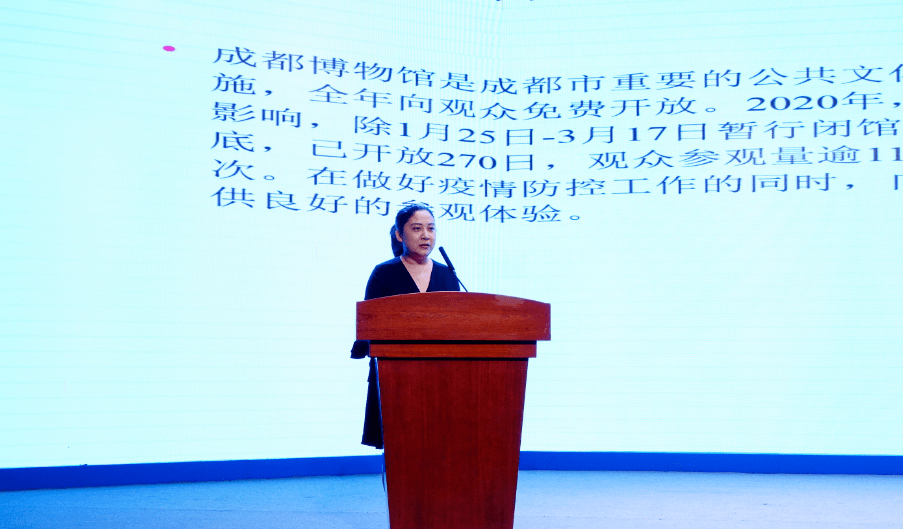 成都博物馆是成都市重要的公共文化
施，全年向观众免费开放。2020年，
影响，除1月25日-3月17日暂行闭馆
底，已开放270日，观众参观量逾11
次。在做好疫情防控工作的同时，
供良好的参观体验。